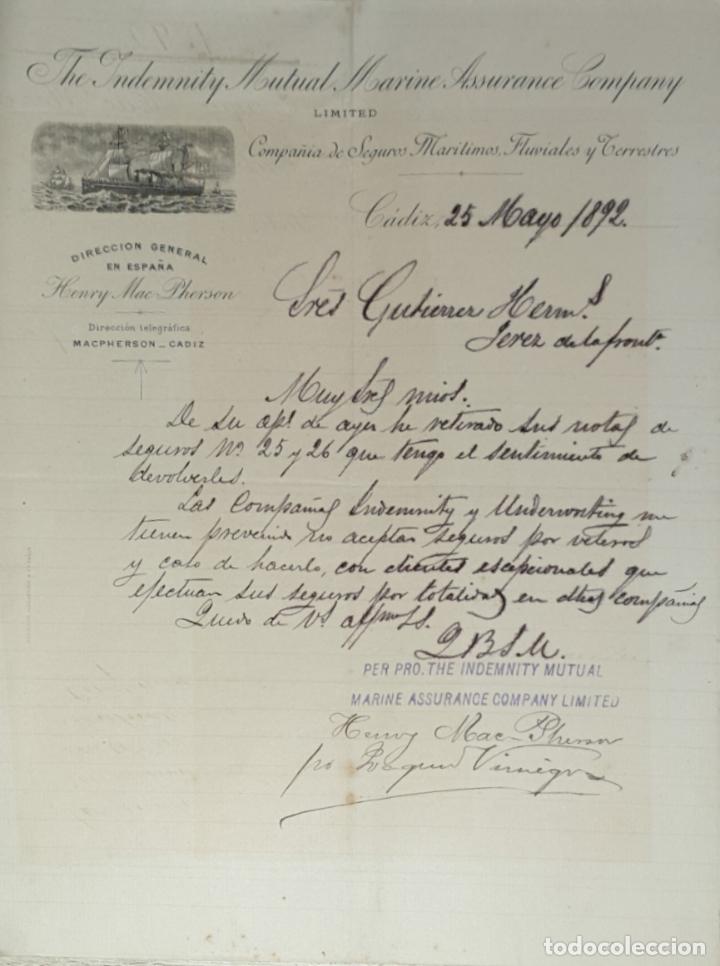 The Indemnity Mutual Marine Assurance Company
LIMITED
Compañia de Seguros Maritimos, Fluviales y Terrestres
Cádiz, 25 Mayo 1892.
DIRECCION GENERAL
EN ESPAÑA
Henry Mac-Pherson
Dirección telegráfica
MACPHERSON_CADIZ
Sres Gutierrez Herms
Jerez de la front.ª
Muy Sres mios.
De su ap.ª de ayer he retirado sus notas de
seguros Nº 25 y 26 que tengo el sentimiento de
devolverles.
Las Compañias Indemnity y Underwriting me
tienen prevenido no aceptar seguros por veleros
y caso de hacerlo, con clientes escepcionales que
efectuan sus seguros por totalidad en dhas compañias
Quedo de Vs. affmo SS.
Q B S M.
PER PRO. THE INDEMNITY MUTUAL
MARINE ASSURANCE COMPANY LIMITED
Henry Mac-Pherson
po Joaquin
todocoleccion